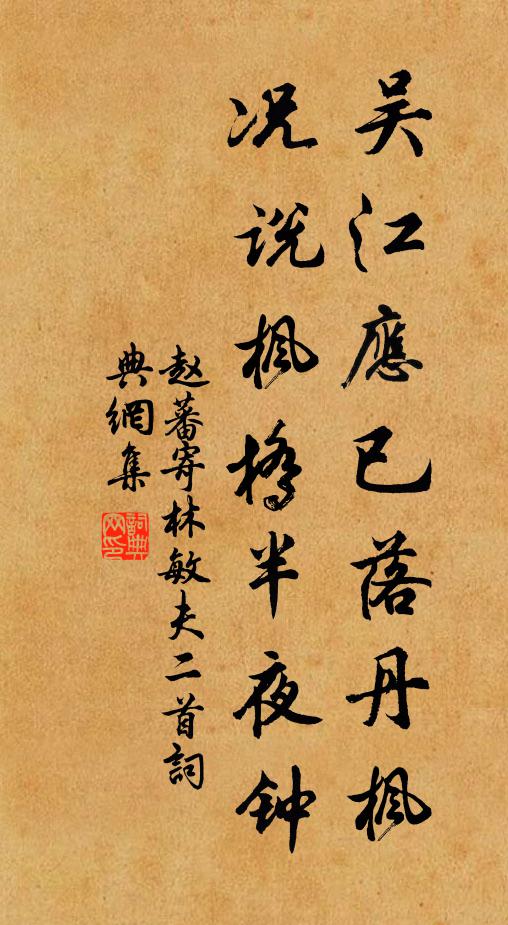 吴江應已落丹楓
况说楓橋半夜钟
赵蕃寄林敏夫二首詞
典網集
詞典網印